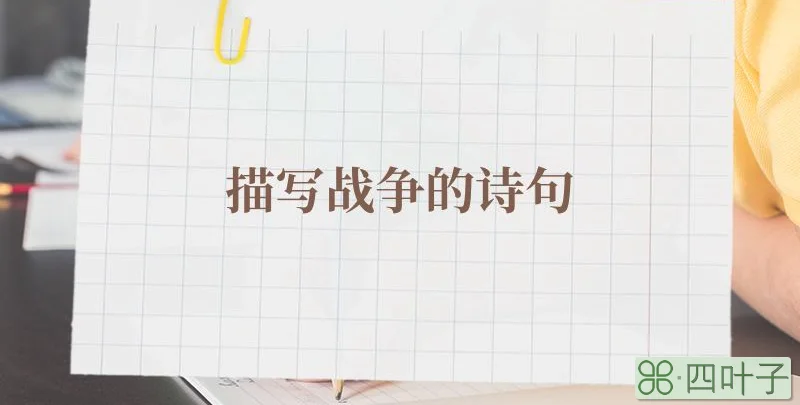 描写战争的诗句
四叶子